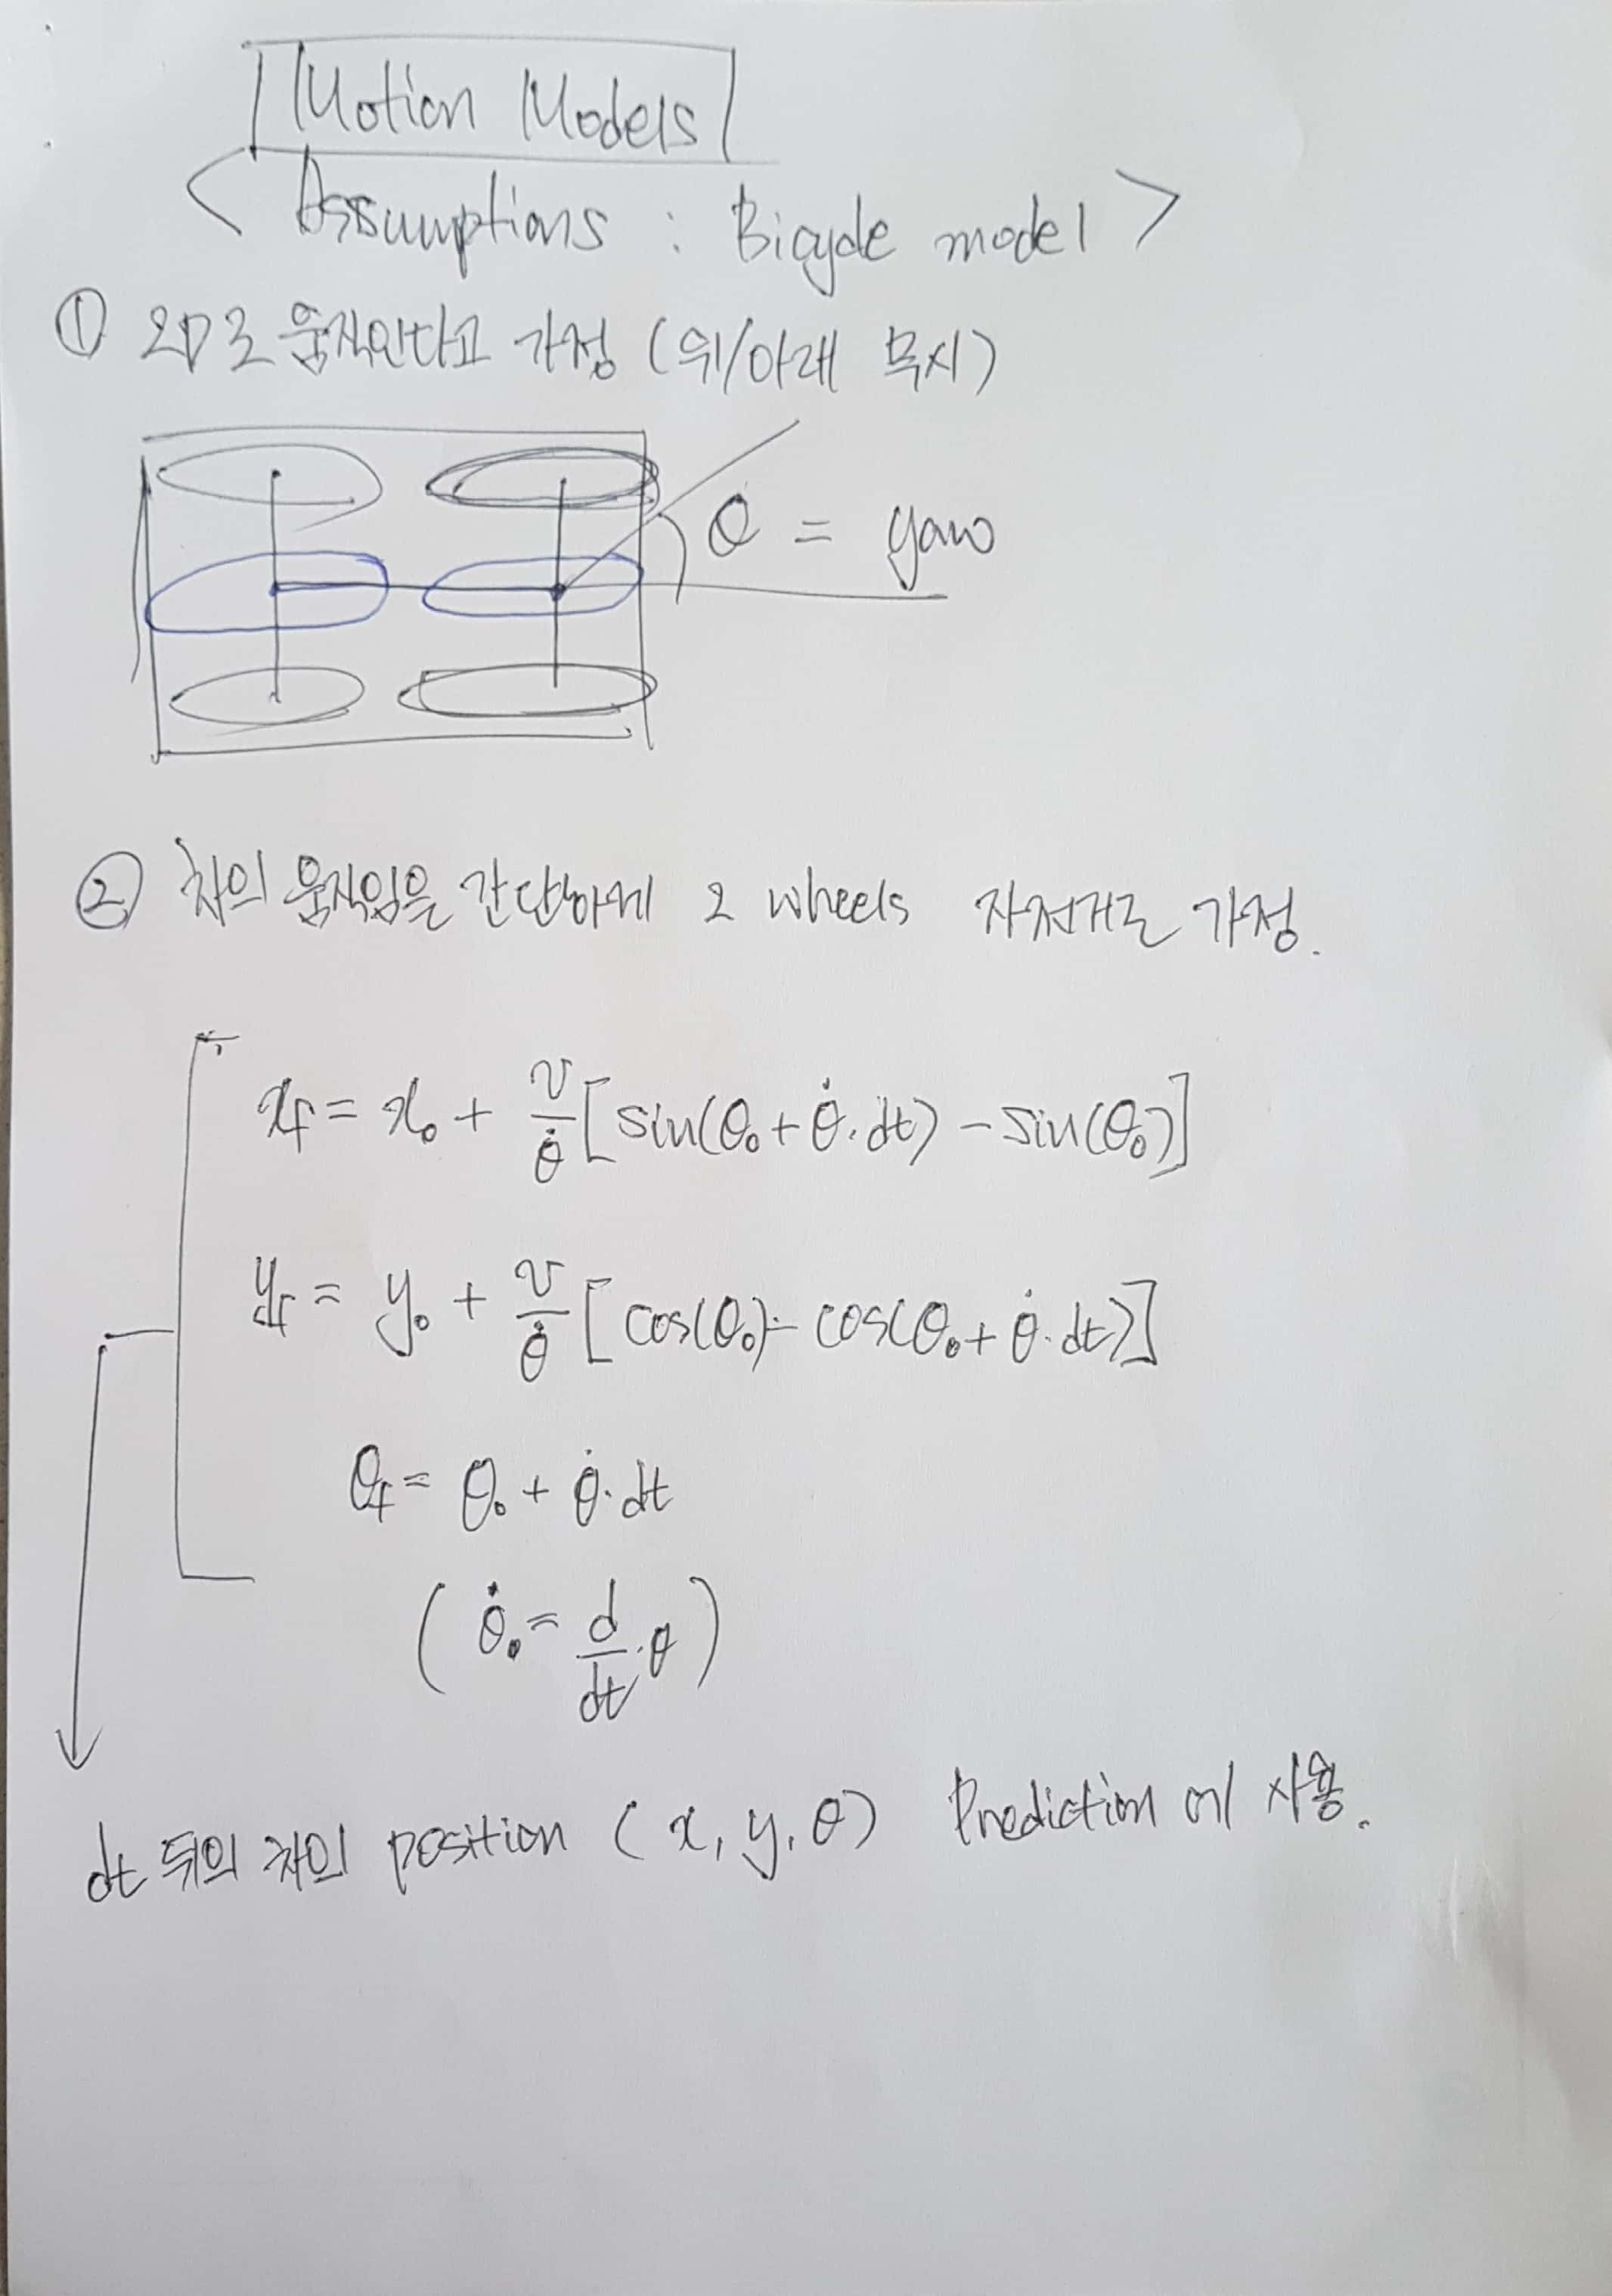 Motion Models
< Assumptions : Bicycle model >
① 2D로 움직인다고 가정 (위/아래 무시)
θ = yaw
② 차의 움직임을 간단하게 2 wheels 자전거로 가정.
x_f = x₀ + v/θ̇ [sin(θ₀ + θ̇·dt) - sin(θ₀)]
y_f = y₀ + v/θ̇ [cos(θ₀) - cos(θ₀ + θ̇·dt)]
θ_f = θ₀ + θ̇·dt
(θ̇₀ = d/dt·θ)
dt 뒤의 차의 position (x, y, θ) Prediction에 사용.